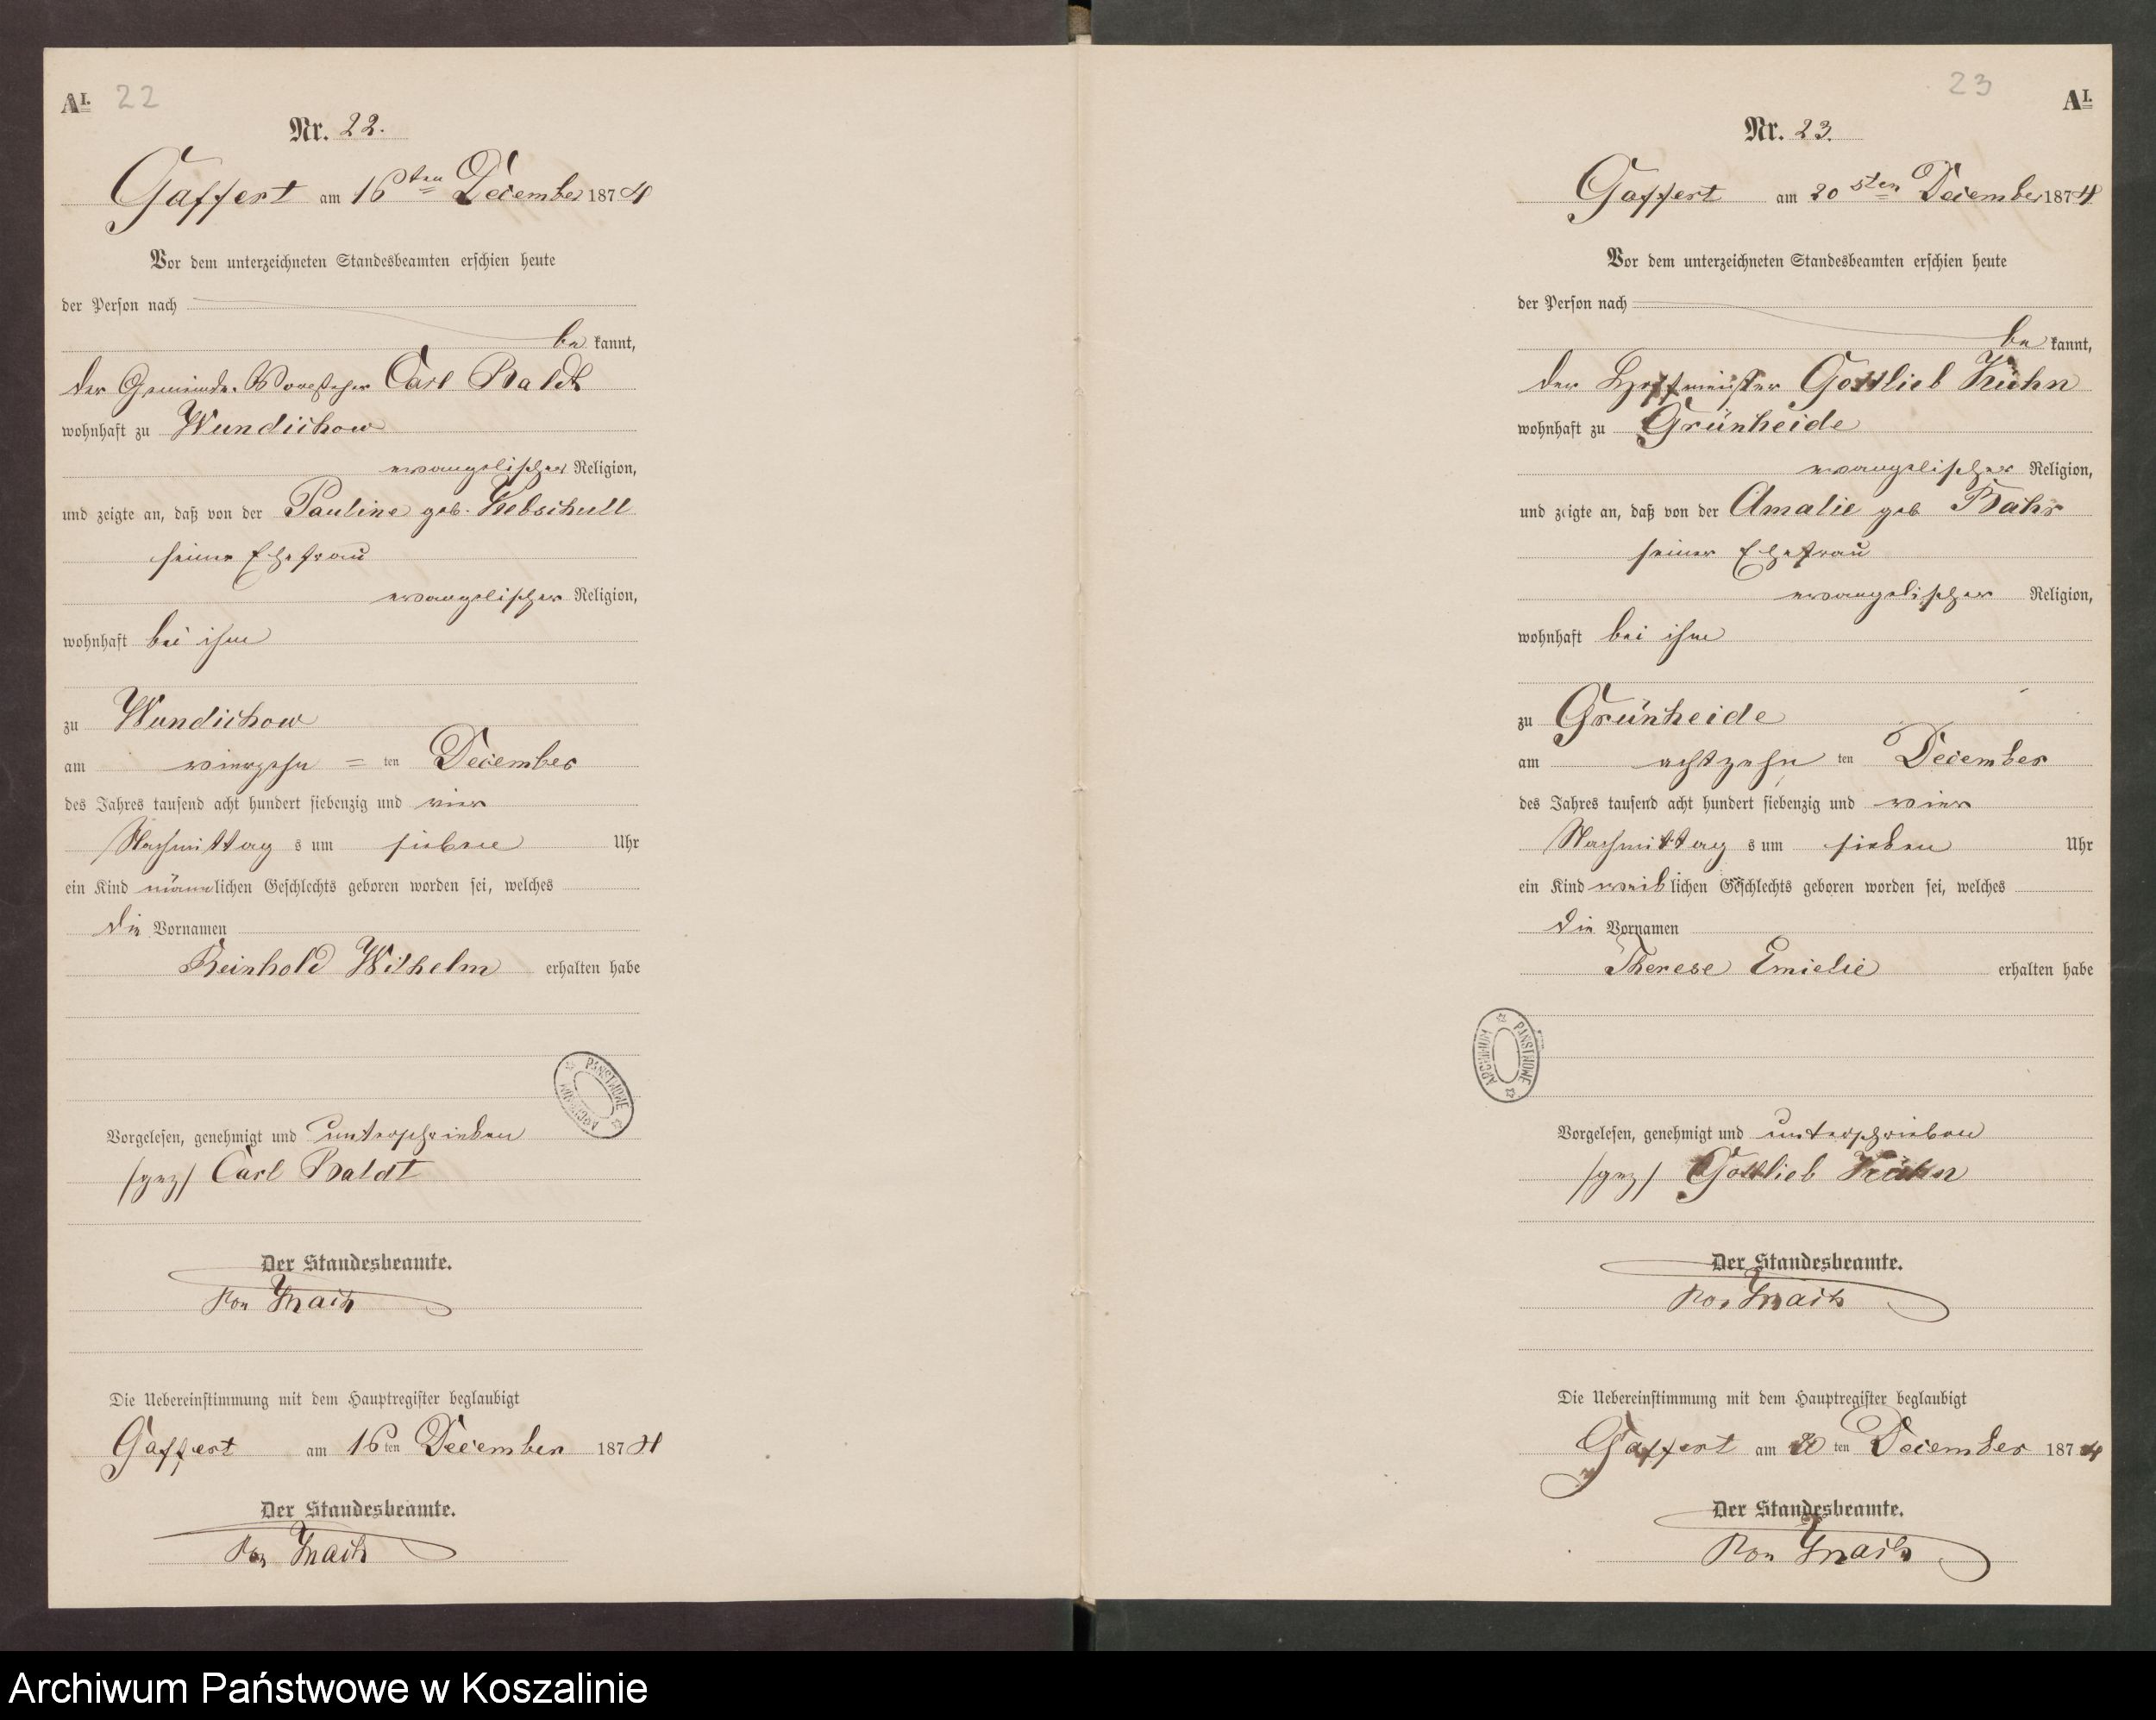 AI. 22
Nr. 22.
Gaffert am 16ten December 1874
Vor dem unterzeichneten Standesbeamten erschien heute
der Person nach
be kannt,
der Gemeinde-Vorsteher Carl Baldt
wohnhaft zu Wundichow
evangelischer Religion,
und zeigte an, daß von der Pauline geb. Kebschull
seiner Ehefrau
evangelischer Religion,
wohnhaft bei ihm
zu Wundichow
am vierzehn = ten December
des Jahres tausend acht hundert siebenzig und vier
Nachmittag s um sieben Uhr
ein Kind männlichen Geschlechts geboren worden sei, welches
die Vornamen
Reinhold Wilhelm erhalten habe
ARCHIWUM PAŃSTWOWE
Vorgelesen, genehmigt und unterschrieben
/gez/ Carl Baldt
Der Standesbeamte.
Von
Die Uebereinstimmung mit dem Hauptregister beglaubigt
Gaffert am 16 ten December 1874
Der Standesbeamte.
Von
23 AI.
Nr. 23.
Gaffert am 20sten December 1874
Vor dem unterzeichneten Standesbeamten erschien heute
der Person nach
be kannt,
der Hoffmeister Gottlieb Kuhn
wohnhaft zu Grünheide
evangelischer Religion,
und zeigte an, daß von der Amalie geb Bahr
seiner Ehefrau
evangelischer Religion,
wohnhaft bei ihm
zu Grünheide
am achtzehn ten December
des Jahres tausend acht hundert siebenzig und vier
Nachmittag s um sieben Uhr
ein Kind weiblichen Geschlechts geboren worden sei, welches
die Vornamen
Therese Emielie erhalten habe
ARCHIWUM PAŃSTWOWE
Vorgelesen, genehmigt und unterschrieben
/gez/ Gottlieb Kuhn
Der Standesbeamte.
Von
Die Uebereinstimmung mit dem Hauptregister beglaubigt
Gaffert am 20 ten December 1874
Der Standesbeamte.
Von
Archiwum Państwowe w Koszalinie